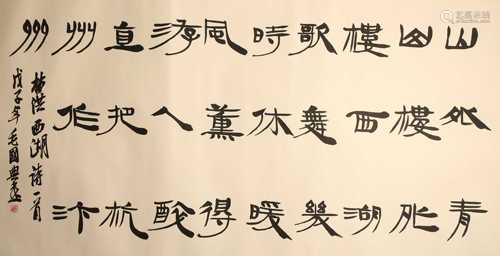 山外青
山樓外
樓西湖
歌舞幾
時休暖
風薰得
游人醉
直把杭
州作汴
州
林洪西湖詩一首
戊子年毛國典書